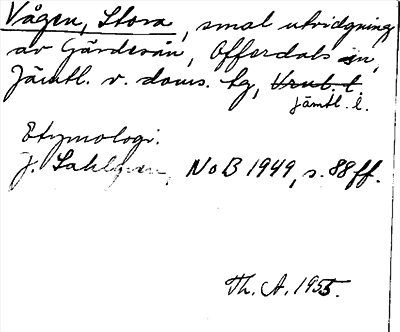 Vågen, Stora, smal utvidgning
av Gärdesån, Offerdals sn,
Jämtl. v. doms. tg,
jämtl. l.
Etymologi.
J. Sahlgren, NoB 1949, s. 88 ff.
Th. A. 1955.